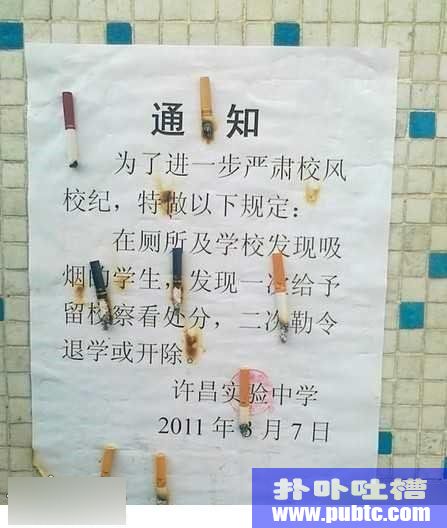 通 知
为了进一步严肃校风
校纪，特做以下规定：
在厕所及学校发现吸
烟的学生，发现一次给予
留校察看处分，二次勒令
退学或开除。
许昌实验中学
2011 年 月 7 日
扑卟吐槽
www.pubtc.com